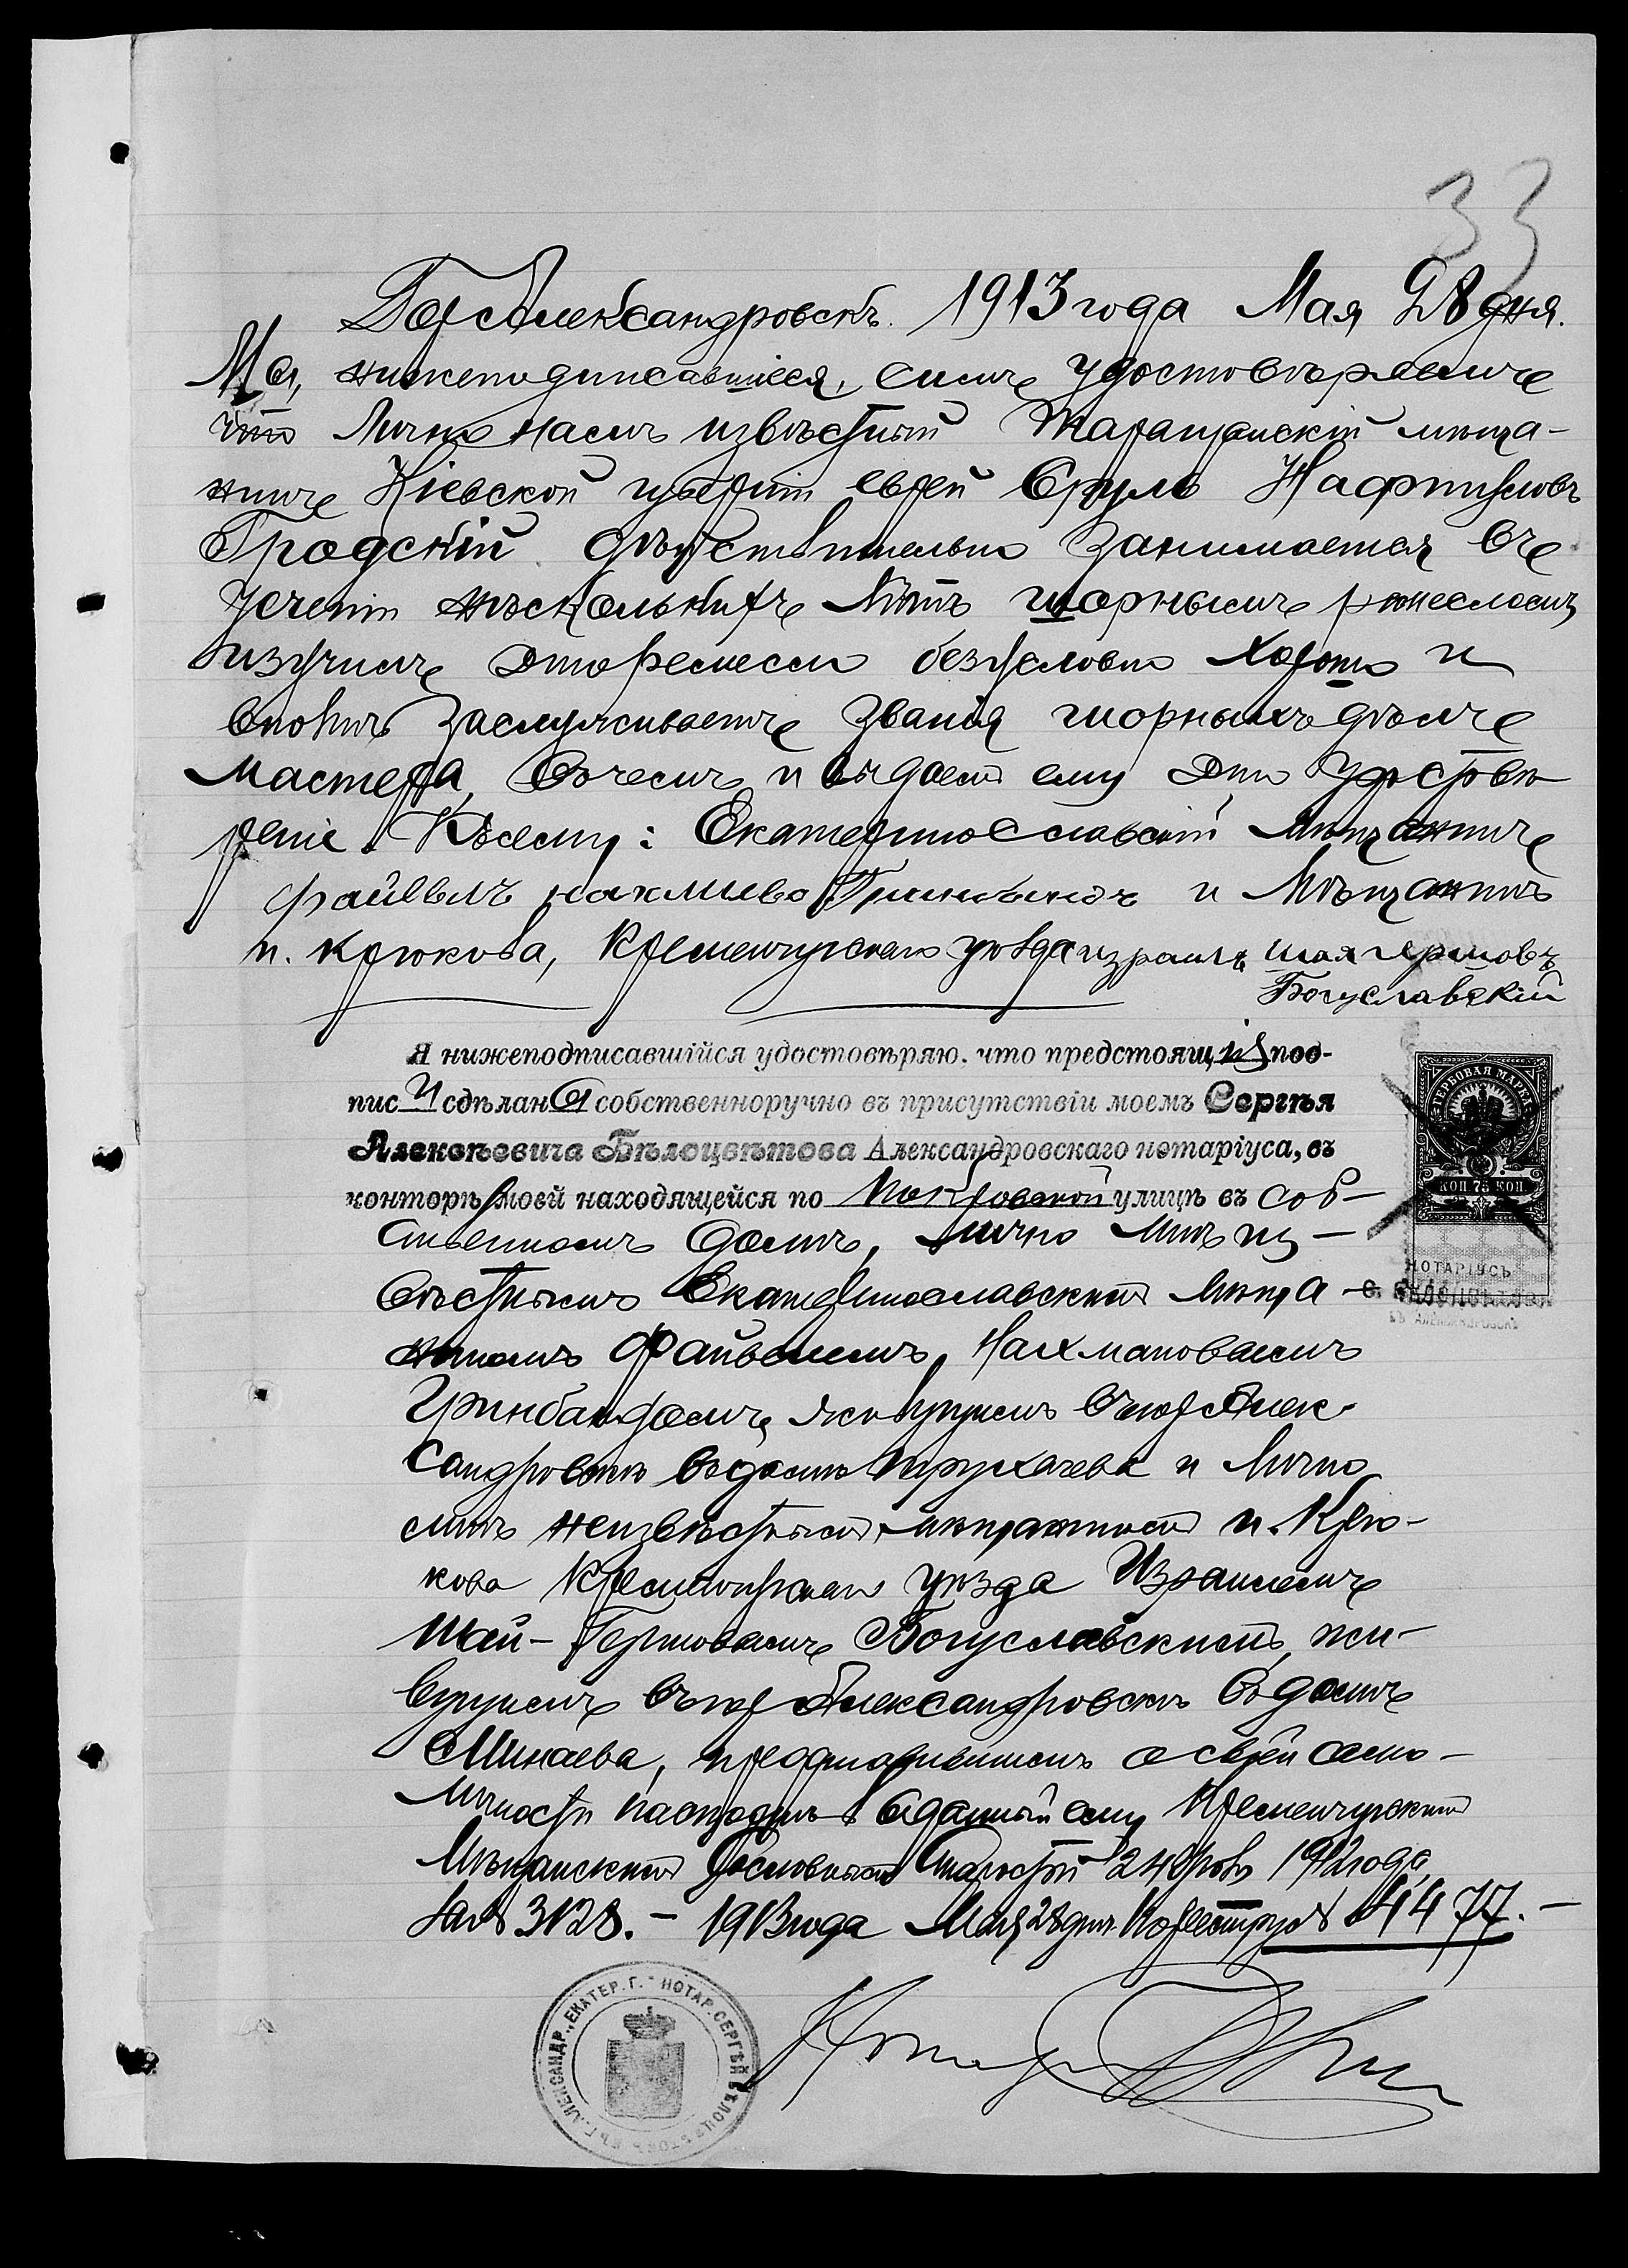 33
Гор Александровскъ. 1913 года Мая 28 дня.
Мы, нижеподписавшіеся, симъ удостовѣряемъ
что лично намъ извѣстный Таращанскій мѣща-
нинъ Кіевской губерніи еврей Сруль Нафтуловъ
Бродскій дѣйствительно занимается въ
теченіи нѣсколькихъ лѣтъ шорнымъ ремесломъ
изучилъ это ремесло безусловно хорошо и
вполнѣ заслуживаетъ званія шорныхъ дѣлъ
мастера, въ чемъ и выдаемъ ему это удостовѣ
реніе. Къ сему: Екатеринославскій мѣщанинъ
Файвель Нахмановъ и Мѣщанинъ
п. Крюкова, Кременчугскаго уѣзда Израиль Шая Гершовъ
Богуславскій
Я нижеподписавшійся удостовѣряю, что предстоящія под-
писи сдѣланы собственноручно въ присутствіи моемъ Сергѣя
Алексѣевича Бѣлоцвѣтова Александровскаго нотаріуса, въ
конторѣ моей находящейся по Покровской улицѣ въ соб-
ственномъ домѣ, лично мнѣ из-
вѣстнымъ Екатеринославскимъ мѣща-
ниномъ Файвелемъ Нахмановымъ
Гринбандомъ, живущимъ въ гор Алек-
сандровскѣ въ домѣ и лично
мнѣ неизвѣстнымъ мѣщаниномъ п. Крю-
кова Кременчугскаго уѣзда Израилемъ
Шай-Гершовымъ Богуславскимъ, жи-
вущимъ въ гор Александровскѣ въ домѣ
Минаева, представившимъ о своей само-
личности паспортъ выданный ему Кременчугскимъ
Мѣщанскимъ Сословнымъ Старостой 24 1912 года
за № 3128. - 1913 года Мая 28 дня. По реестру № 4477. -
Нотаріусъ
ГЕРБОВАЯ МАРКА
КОП 75 КОП
НОТАРІУСЪ
С. БѢЛОЦВѢТОВЪ
ВЪ АЛЕКСАНДРОВСКѢ
НОТАР. СЕРГѢЙ БѢЛОЦВѢТОВЪ ВЪ Г. АЛЕКСАНДР., ЕКАТЕР. Г.